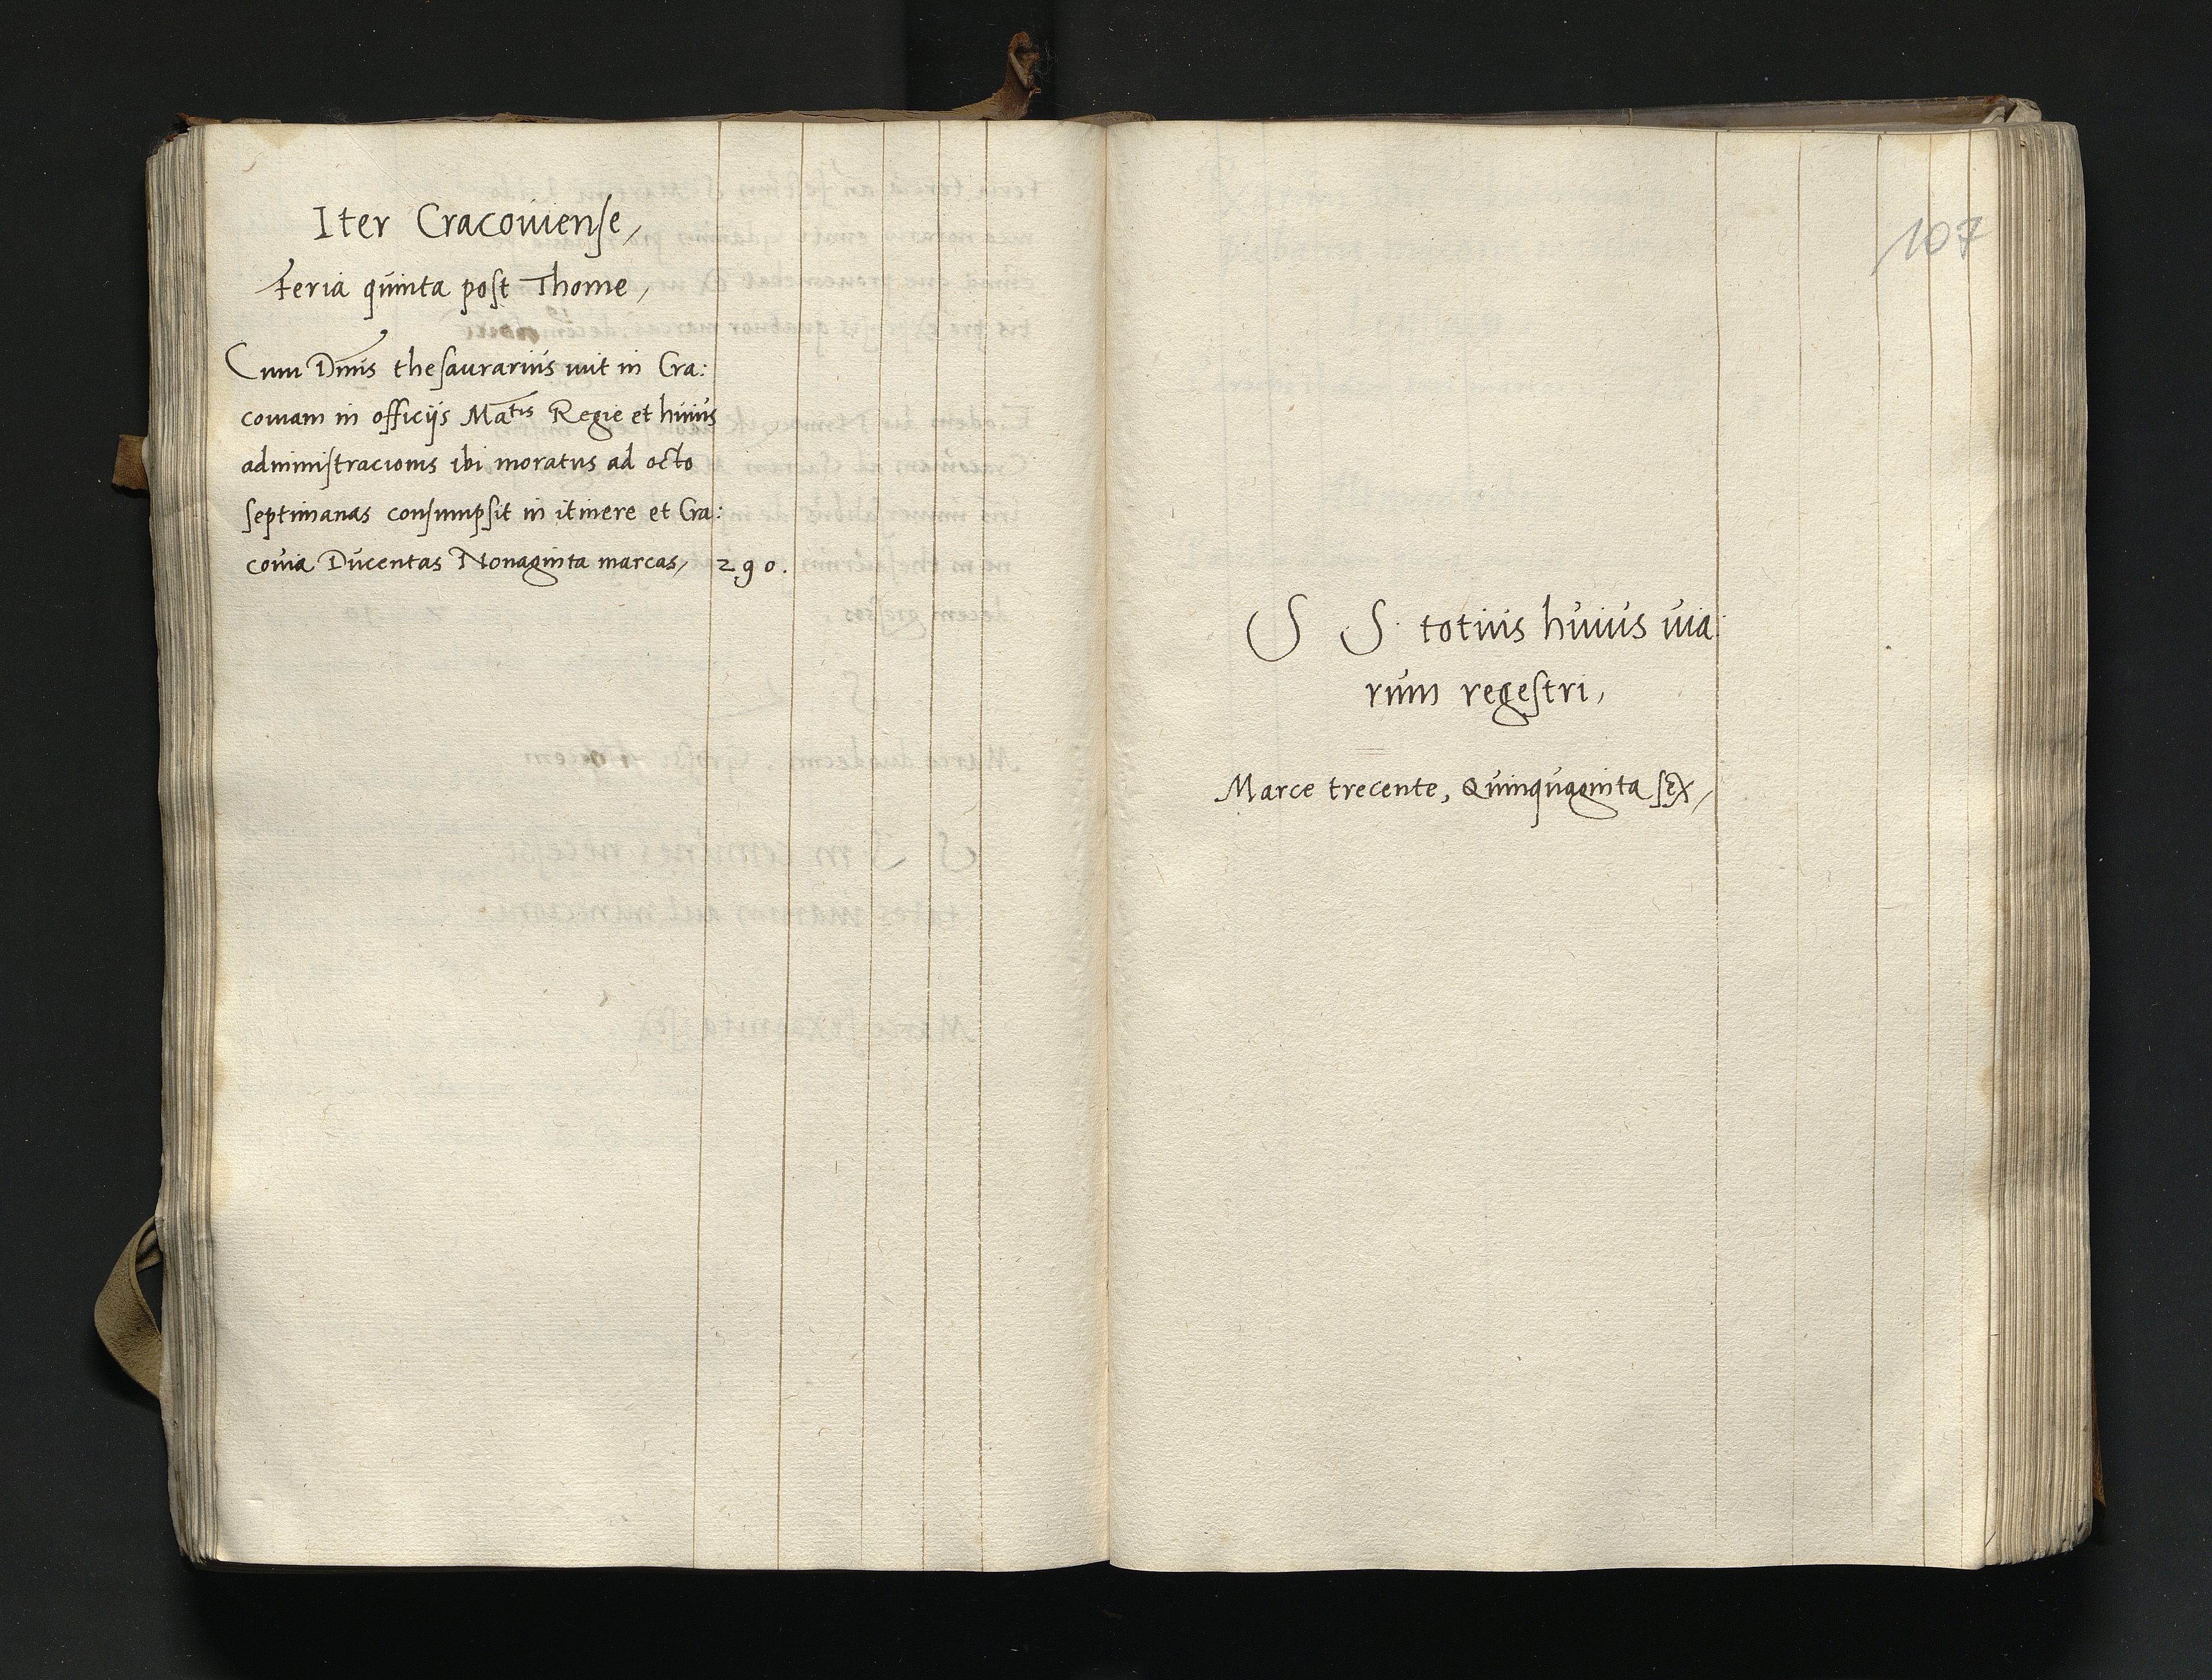 Iter Cracouiense,
Feria quinta post Thome,
Cum Dnis thesaurarius iuit in Cra:
couiam in officijs Matis Regie et huius
administracionis ibi moratus ad octo
septimanas consumpsit in itinere et Cra:
couia Ducentas Nonaginta marcas, 290.
107
S S. totius huius uia:
rum regestri,
Marce trecente, Quinquaginta sex,